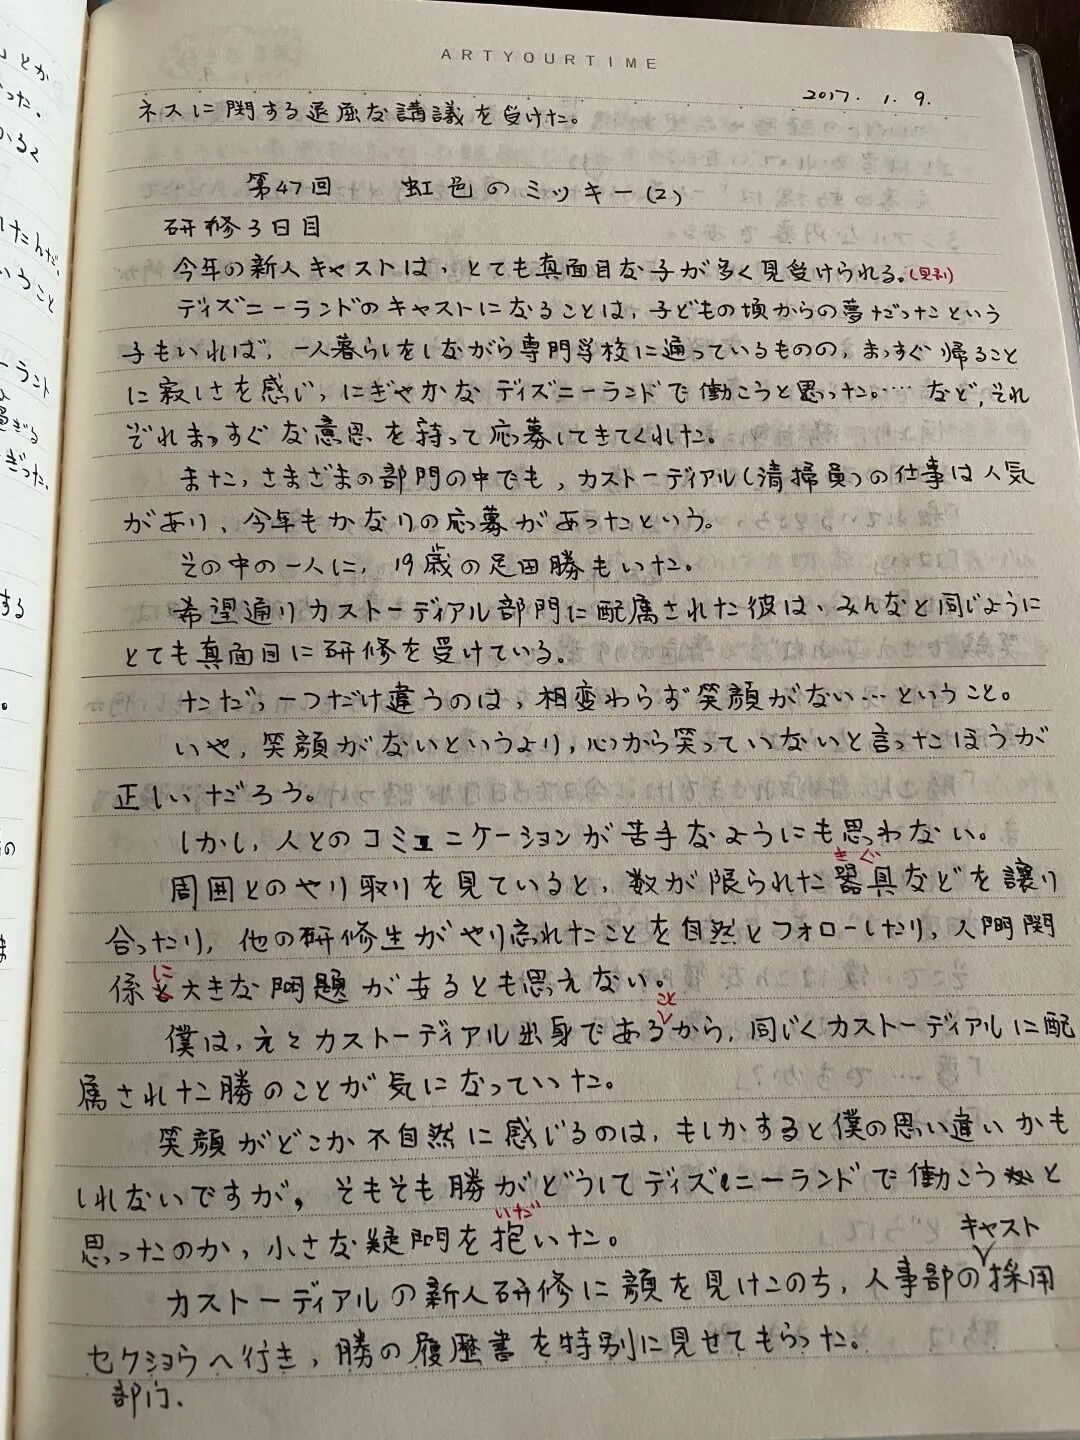 ARTYOURTIME
2017. 1. 9.
ネスに関する退屈な講議を受けた。
第47回 虹色のミッキー(2)
研修3日目
今年の新人キャストは、とても真面目な子が多く見受けられる。(見到)
ディズニーランドのキャストになることは、子どもの頃からの夢だったという
子もいれば、一人暮らしをしながら専門学校に通っているものの、まっすぐ帰ること
に寂しさを感じ、にぎやかなディズニーランドで働こうと思った…… など、それ
ぞれまっすぐな意思を持って応募してきてくれた。
また、さまざまの部門の中でも、カストーディアル(清掃員)の仕事は人気
があり、今年もかなりの応募があったという。
その中の一人に、19歳の足田勝もいた。
希望通りカストーディアル部門に配属された彼は、みんなと同じように
とても真面目に研修を受けている。
ただ、一つだけ違うのは、相変わらず笑顔がない…ということ。
いや、笑顔がないというより、心から笑っていないと言ったほうが
正しいだろう。
しかし、人とのコミュニケーションが苦手なようにも思わない。
きぐ
周囲とのやり取りを見ていると、数が限られた器具などを譲り
合ったり、他の研修生がやり忘れたことを自然とフォローしたり、人間関
に
係大きな問題があるとも思えない。
こと
僕は、元々カストーディアル出身であるから、同じくカストーディアルに配
属された勝のことが気になっていた。
笑顔がどこか不自然に感じるのは、もしかすると僕の思い違いかも
しれないですが、そもそも勝がどうしてディズニーランドで働こうと
いだ
思ったのか、小さな疑問を抱いた。
キャスト
カストーディアルの新人研修に顔を見けこのち、人事部の採用
セクショウへ行き、勝の履歴書を特別に見せてもらった。
部门.